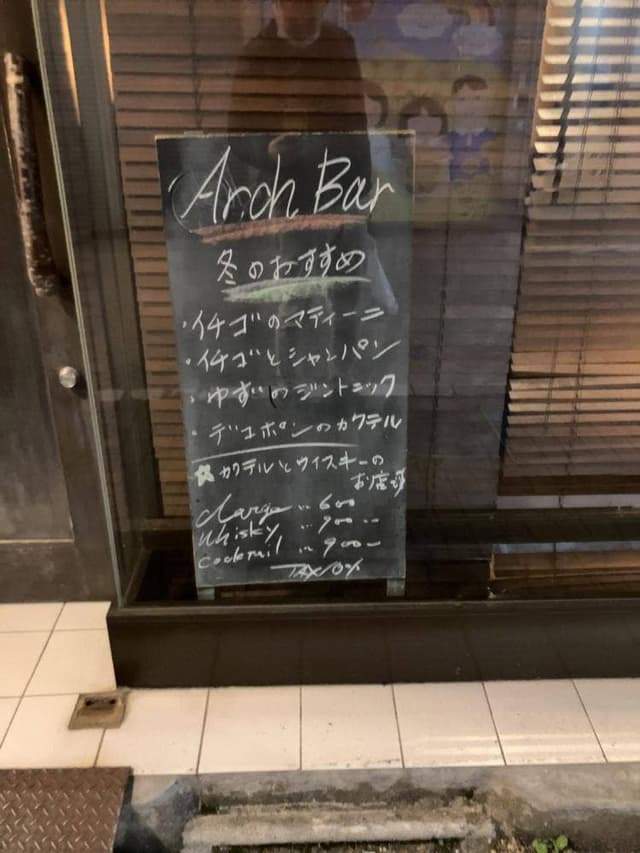 Arch Bar
冬のおすすめ
・イチゴのマティーニ
・イチゴとシャンパン
・ゆずのジントニック
・デコポンのカクテル
★カクテルとウイスキーの
お店
charge 〃 600
whisky 〃 900 〜
cocktail 〃 900 〜